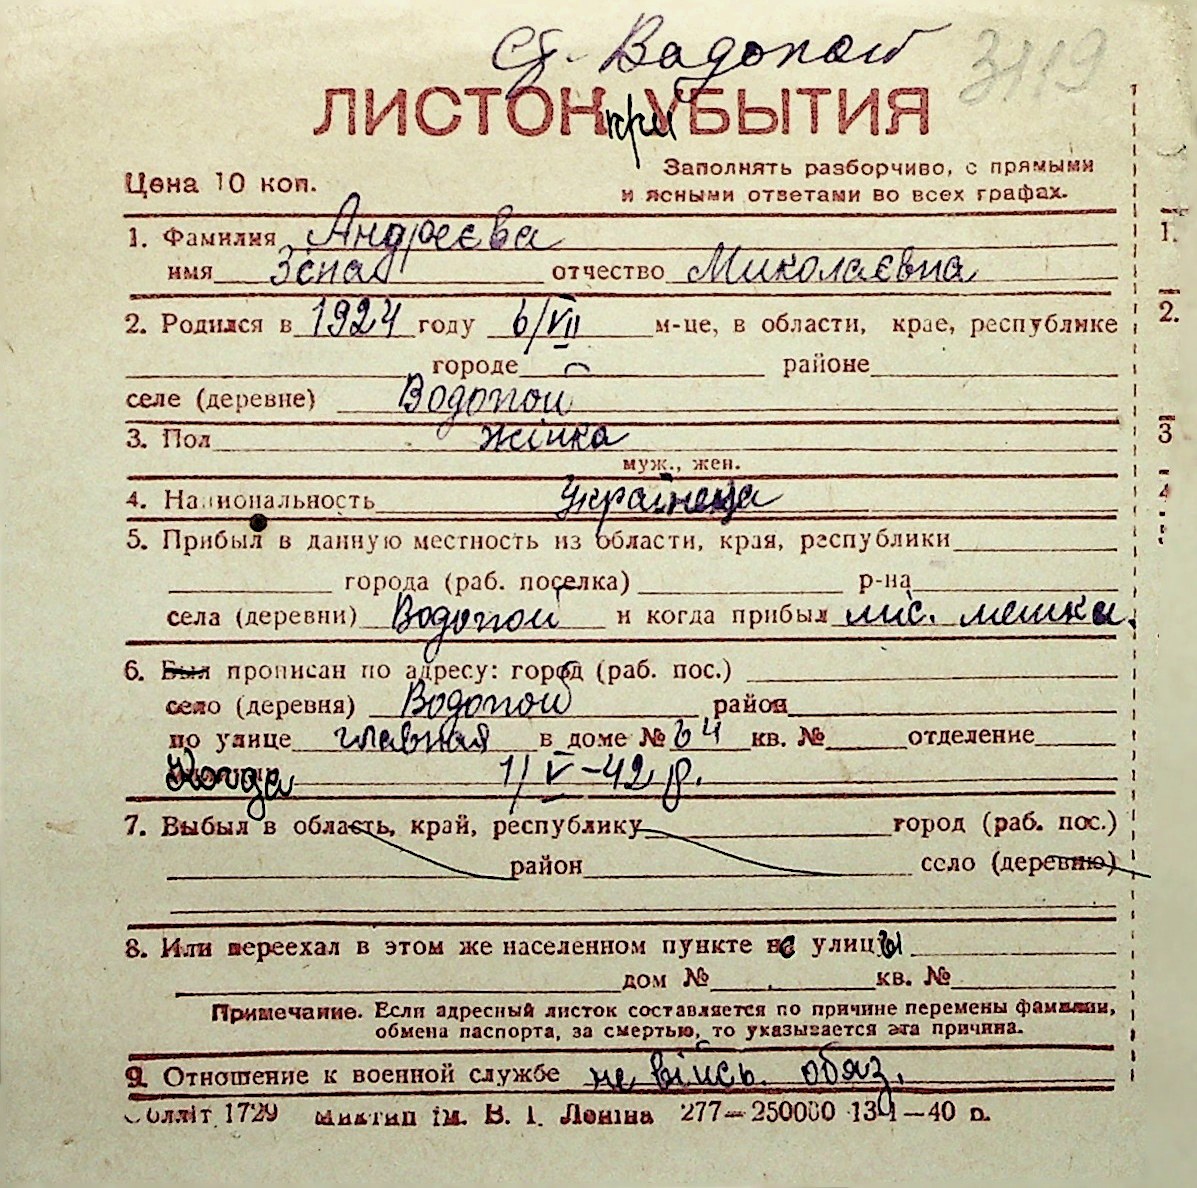 ст. Водопой
3119
ЛИСТОК при УБЫТИЯ
Цена 10 коп.
Заполнять разборчиво, с прямыми
и ясными ответами во всех графах.
1. Фамилия Андреєва
имя Зєна отчество Миколаєвна
2. Родился в 1924 году 6/VII м-це, в области, крае, республике
городе районе
селе (деревне) Водопой
3. Пол жінка
муж., жен.
4. Национальность Українеца
5. Прибыл в данную местность из области, края, республики
города (раб. поселка) р-на
села (деревни) Водопой и когда прибыл міс. мешка.
6. Был прописан по адресу: город (раб. пос.)
село (деревня) Водопой район
по улице главная в доме № 64 кв. № отделение
Когда 1/V-42 р.
7. Выбыл в область, край, республику город (раб. пос.)
район село (деревню)
8. Или переехал в этом же населенном пункте с улицы
дом № кв. №
Примечание. Если адресный листок составляется по причине перемены фамилии,
обмена паспорта, за смертью, то указывается эта причина.
9. Отношение к военной службе не війсь. обяз.
Облліт 1729 Миктип ім. В. І. Леніна 277—250000 13 —40 р.
1.
2.
3
4